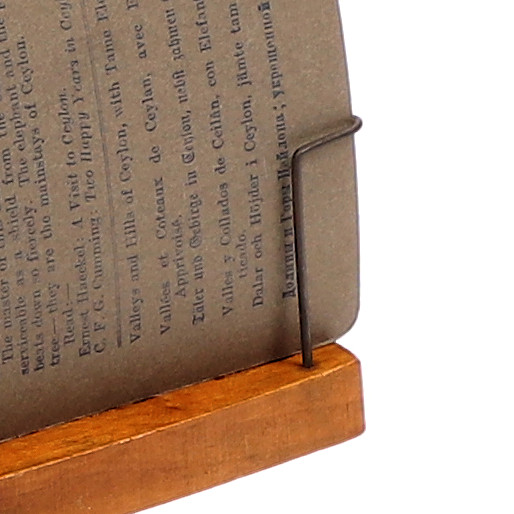 The master of this
serviceable as a shield from the
beats down so fiercely. The elephant and the
tree— they are the mainstays of Ceylon.
Read:—
Ernest Haeckel: A Visit to Ceylon.
C. F. G. Cumming: Two Happy Years in Ceyl
Valleys and Hills of Ceylon, with Tame El
Vallées et Coteaux de Ceylan, avec E
Apprivoisé.
Täler und Gebirge in Ceylon, nebst zahmen
Valles y Collados de Ceilán, con Elefan
ticado.
Dalar och Höjder i Ceylon, jämte tam
Долины и Горы Цейлона; укрощенной